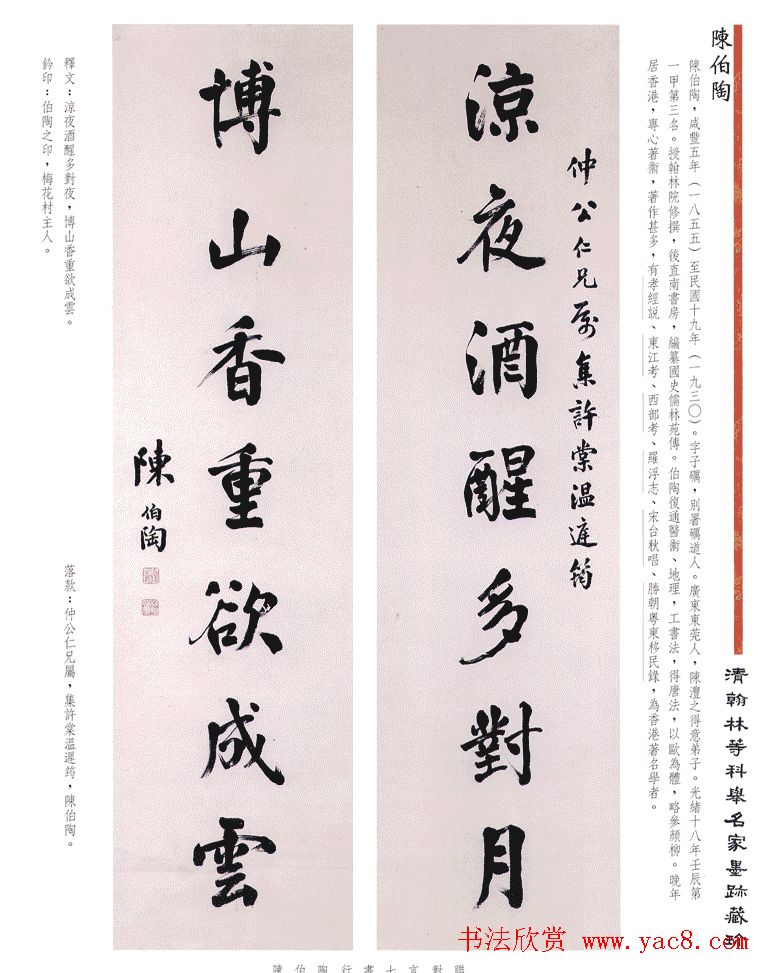 陳伯陶
陳伯陶，咸豐五年（一八五五）至民國十九年（一九三〇）。字子礪，別署礪道人。廣東東莞人，陳澧之得意弟子。光緒十八年壬辰第
一甲第三名。授翰林院修撰，後直南書房，編纂國史儒林苑傳。伯陶復通醫術、地理，工書法，得唐法，以歐為體，略參顏柳。晚年
居香港，專心著術，著作甚多，有孝經説、東江考、西部考、羅浮志、宋台秋唱、勝朝粵東移民錄，為香港著名學者。
清翰林等科舉名家墨跡藏珍
仲公仁兄属集許棠温庭筠
涼夜酒醒多對月
博山香重欲成雲
陳伯陶
釋文：涼夜酒醒多對夜，博山香重欲成雲。
鈐印：伯陶之印，梅花村主人。
落款：仲公仁兄屬，集許棠溫遲筠，陳伯陶。
陳伯陶行書七言對聯
书法欣赏 www.yac8.com